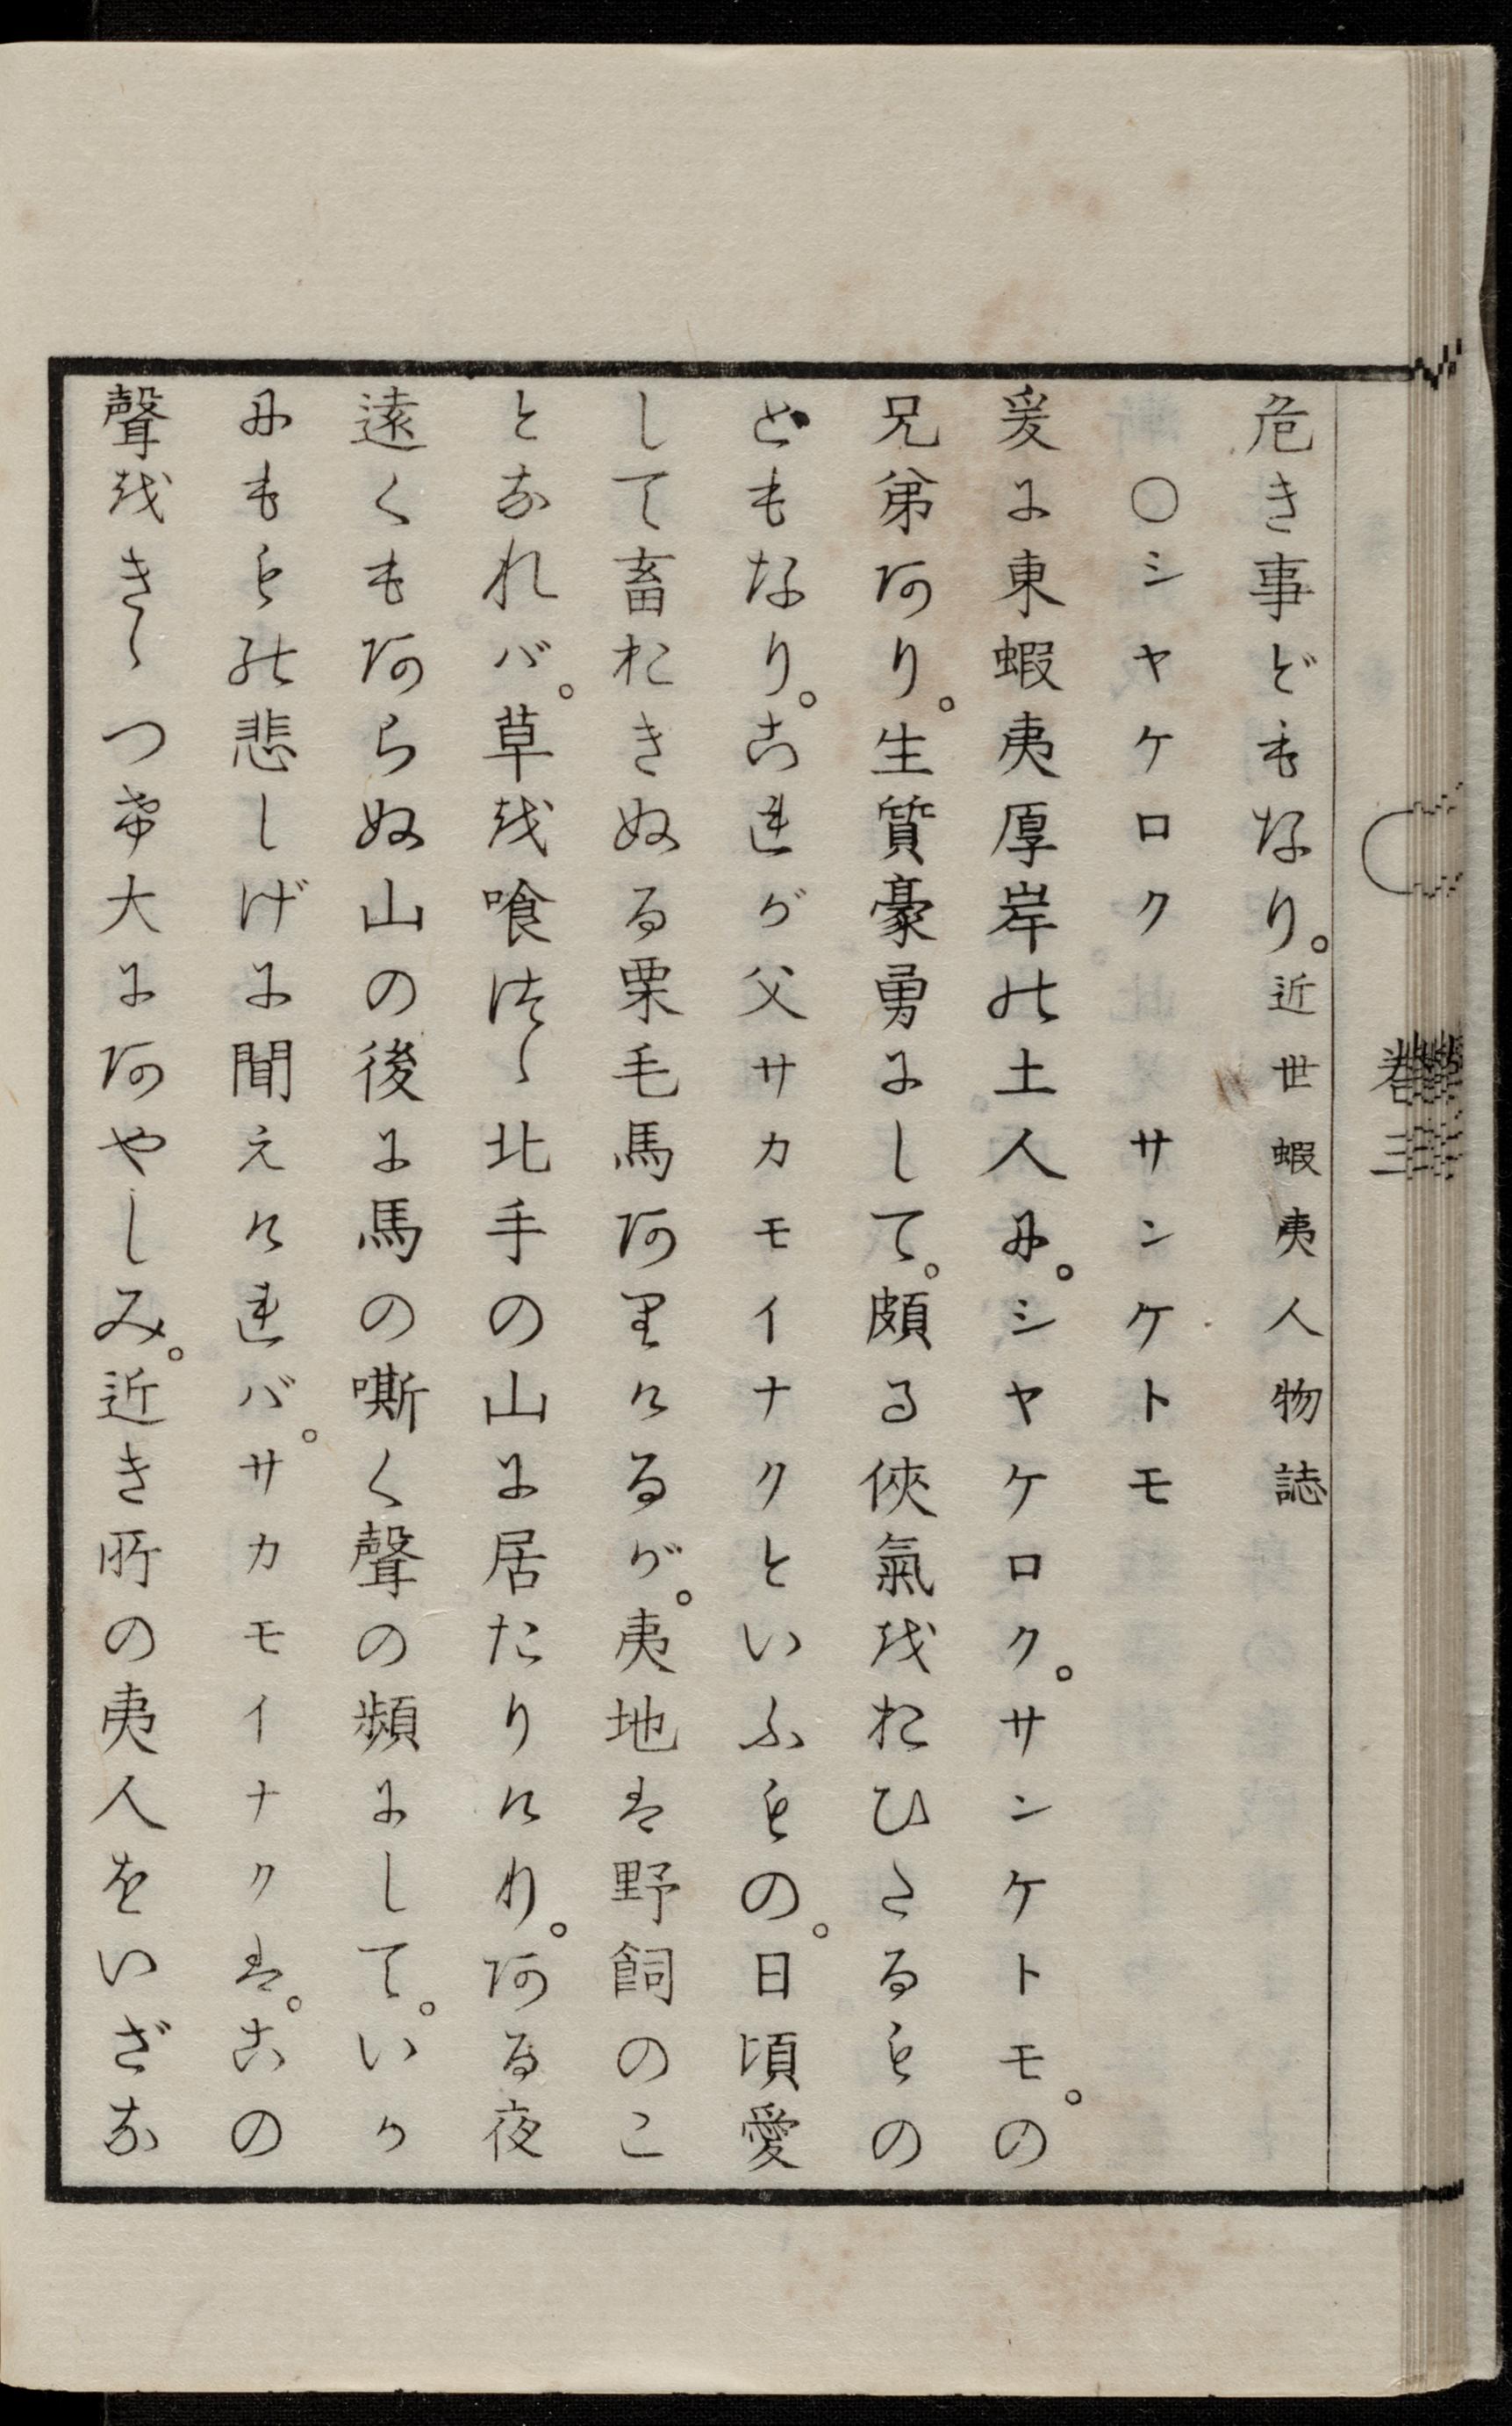 卷三
危き事どもなり。近世蝦夷人物誌
○シヤケロク　サンケトモ
爰に東蝦夷厚岸の土人に。シヤケロク。サンケトモ。の
兄弟あり。生質豪勇にして。頗る俠氣をおひたるもの
どもなり。これが父サカモイナクといふもの。日頃愛
して畜おきぬる栗毛馬ありけるが。夷地は野飼のこ
となれバ。草を喰つゝ北手の山に居たりけり。ある夜
遠くもあらぬ山の後に馬の嘶く聲の頻にして。いか
にももの悲しげに聞えけれバ。サカモイナクは。この
聲をきゝつけ大にあやしみ。近き所の夷人をいざな